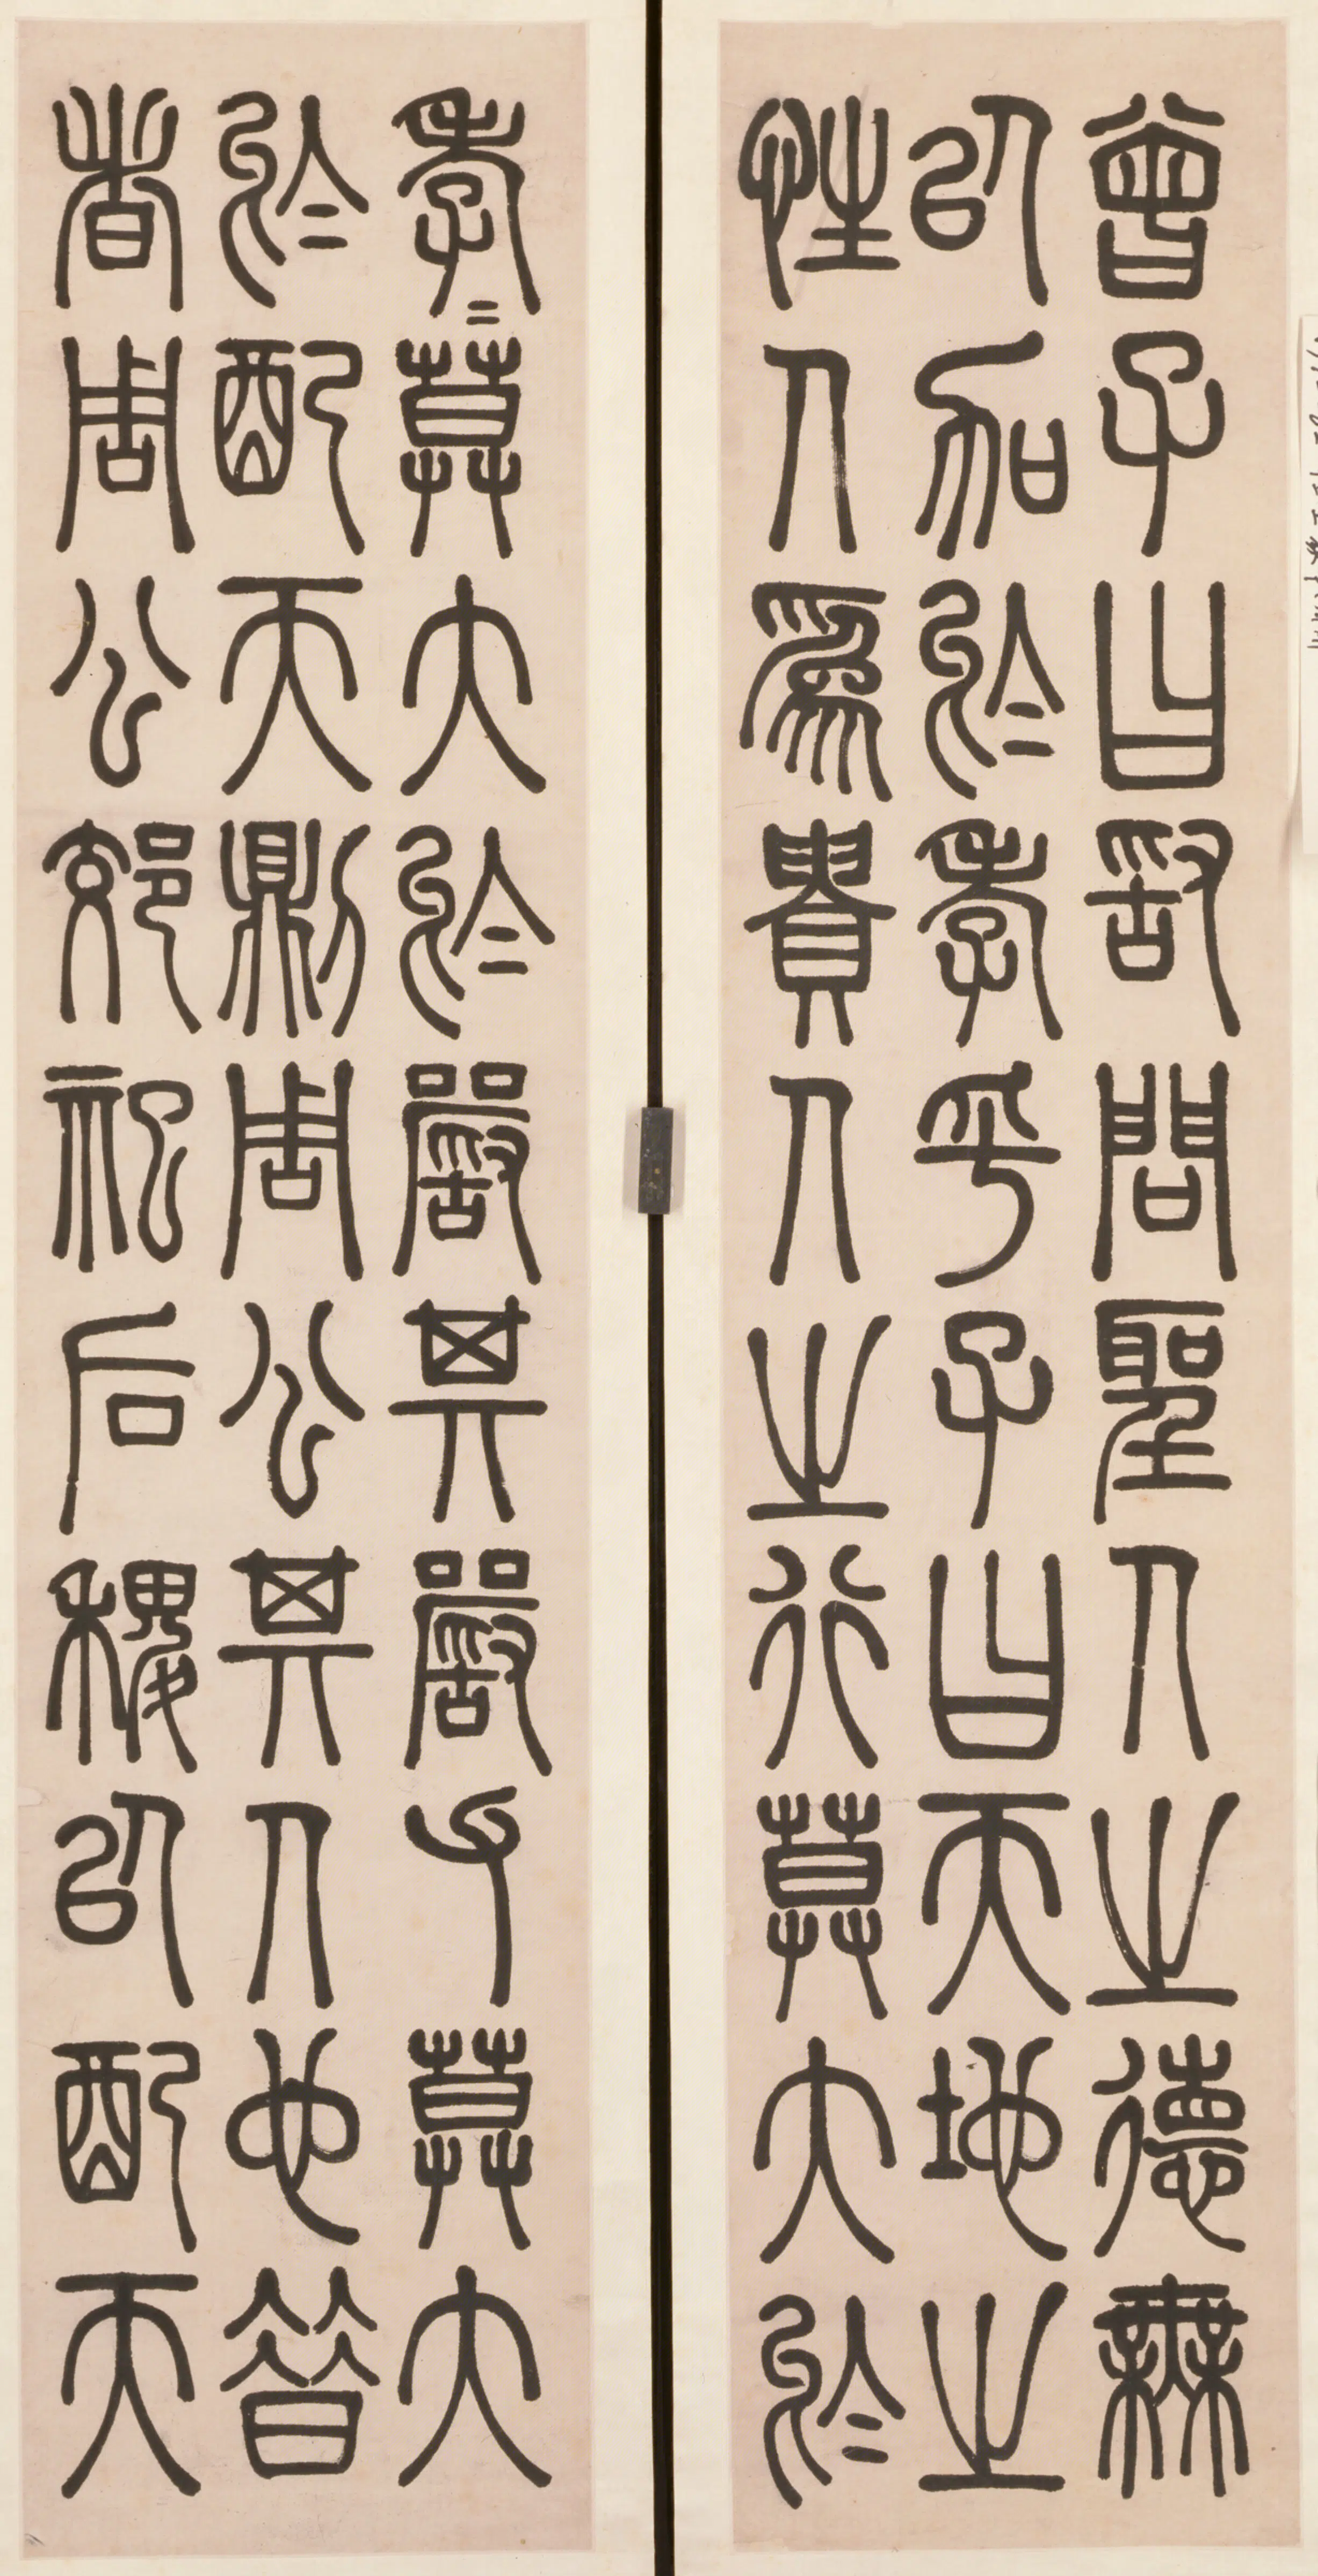 曾子曰敢問聖人之德無
以加於孝乎子曰天地之
性人為貴人之行莫大於
孝〻莫大於嚴其嚴父莫大
於配天則周公其人也昔
者周公郊祀后稷以配天